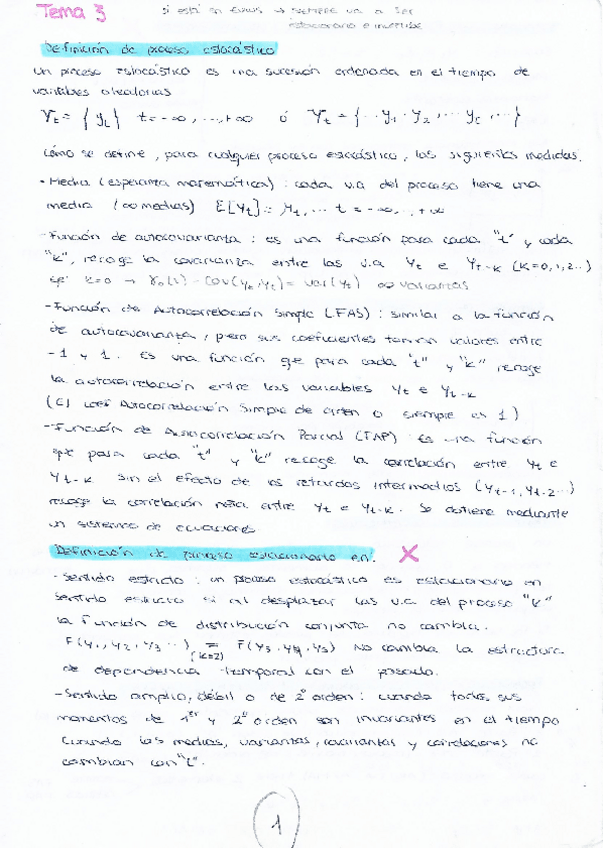 Tema 3
si está en EVIEWS → SIEMPRE va a ser
estacionario e invertible
Definición de proceso estocástico
Un proceso estocástico es una sucesión ordenada en el tiempo de
variables aleatorias
Yt = { yt } t = -∞, ..., +∞ ó Yt = { ... y1 . y2 , ... yt , ... }
Cómo se define, para cualquier proceso estocástico, las siguientes medidas.
- Media (esperanza matemática) : cada v.a del proceso tiene una
media (∞ medias) E[Yt] = μt, ... t = -∞, .. , +∞
- Función de autocovarianza : es una función para cada "t" y cada
"k", recoge la covarianza entre las v.a Yt e Yt-k (k=0,1,2...)
k=0 → γ0(t) = cov(yt, yt) = var(yt) ∞ varianzas
- Función de Autocorrelación Simple (FAS) : similar a la función
de autocovarianza, pero sus coeficientes toman valores entre
-1 y 1. Es una función que para cada "t" y "k" recoge
la autocorrelación entre las variables Yt e Yt-k
(El coef Autocorrelación Simple de orden 0 siempre es 1)
- Función de Autocorrelación Parcial (FAP) : es una función
que para cada "t" y "k" recoge la correlación entre Yt e
Yt-k sin el efecto de los retardos intermedios (Yt-1, Yt-2...)
recoge la correlación neta entre Yt e Yt-k. Se obtiene mediante
un sistema de ecuaciones
Definición de proceso estacionario en: X
- Sentido estricto : un proceso estocástico es estacionario en
sentido estricto si al desplazar las v.a del proceso "k"
la función de distribución conjunta no cambia.
F(y1, y2, y3 ...) = (k=2) F(y3, y4, y5) no cambia la estructura
de dependencia temporal con el pasado.
- Sentido amplio, débil o de 2º orden : cuando todos sus
momentos de 1er y 2º orden son invariantes en el tiempo
cuando las medias, varianzas, covarianzas y correlaciones no
cambian con "t".
1